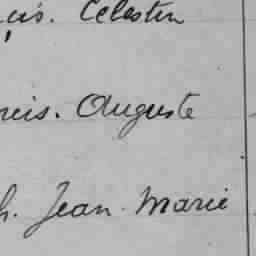 çis. Célestin
cis. Auguste
h. Jean Marie